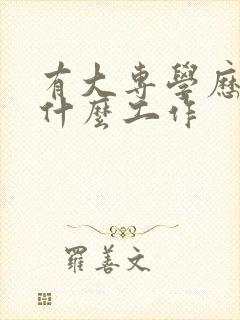 有大專學歷
什麼工作
羅善文